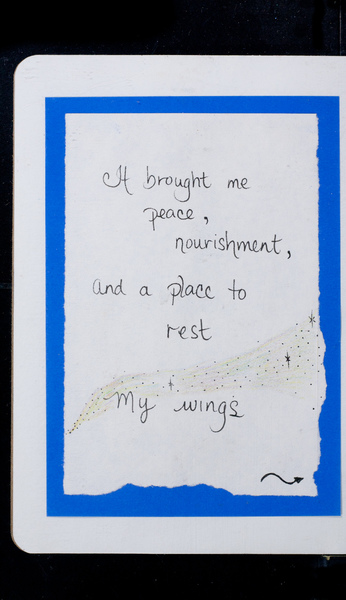 It brought me
peace,
nourishment,
and a place to
rest
My wings